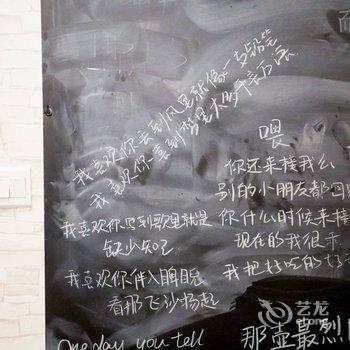 我喜欢你丢到风里就像一支铅笔
我喜欢你拿到梦里太多千言万语
我喜欢你写到歌里就是
缺少知己
我喜欢你伴入眸眼
看那飞沙扬起
One day you tell
喂
你还来接我么
别的小朋友都回
你什么时候来接
现在的我很乖
我把好吃的好
那壶最烈
艺龙
eLong.com